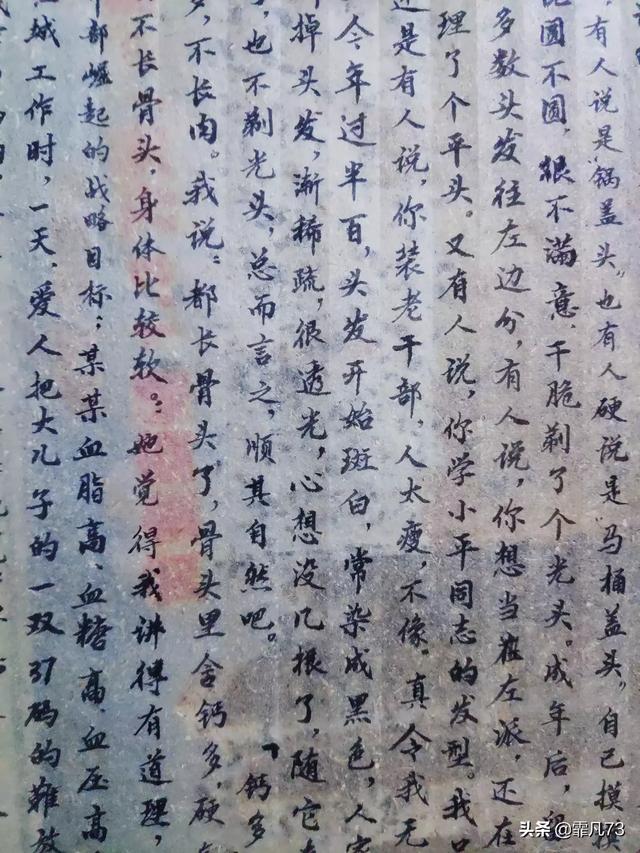 ，有人说是“锅盖头”也有人硬说是“马桶盖头，自己摸摸
说圆不圆，很不满意，干脆剃了个光头。成年后，
多数头发往左边分，有人说，你想当左派，还在
理了个平头。又有人说，你学小平同志的发型。我只
过是有人说，你装老干部，人太瘦，不像。真令我无
今年过半百，头发开始斑白，常染成黑色，人家
掉头发，渐稀疏，很透光，心想没几根了，随它
，也不剃光头，总而言之，顺其自然吧。
“钙多
多，不长肉。我说：都长骨头了，骨头里含钙多，硬
不长骨头，身体比较软。：她觉得我讲得有道理，
中部崛起的战略目标；某某血脂高、血糖高、血压高
城工作时，一天，爱人把大儿子的一双37码的难放
头条 @霏凡73